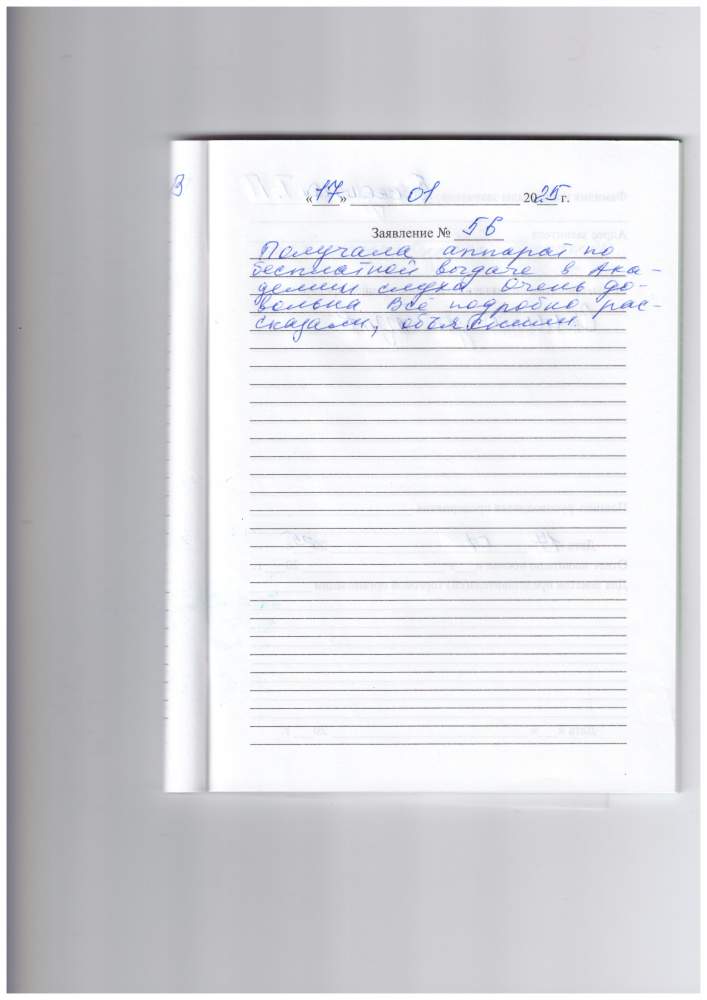 В
«17» 01 2025 г.
Заявление № 56
Получала аппарат по
бесплатной выдаче в Ака-
демии слуха. Очень до-
вольна. Всё подробно рас-
сказали, объяснили.